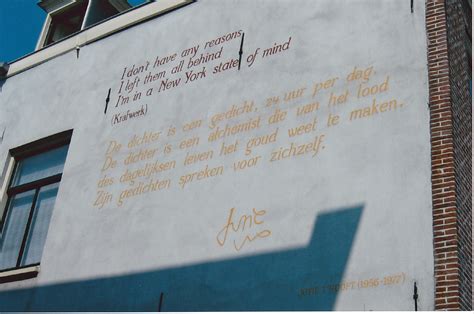 I don't have any reasons
I left them all behind
I'm in a New York state of mind
(Krafwerk)
De dichter is een gedicht, 24 uur per dag.
De dichter is een alchemist die van het lood
des dagelijksen leven het goud weet te maken.
Zijn gedichten spreken voor zichzelf.